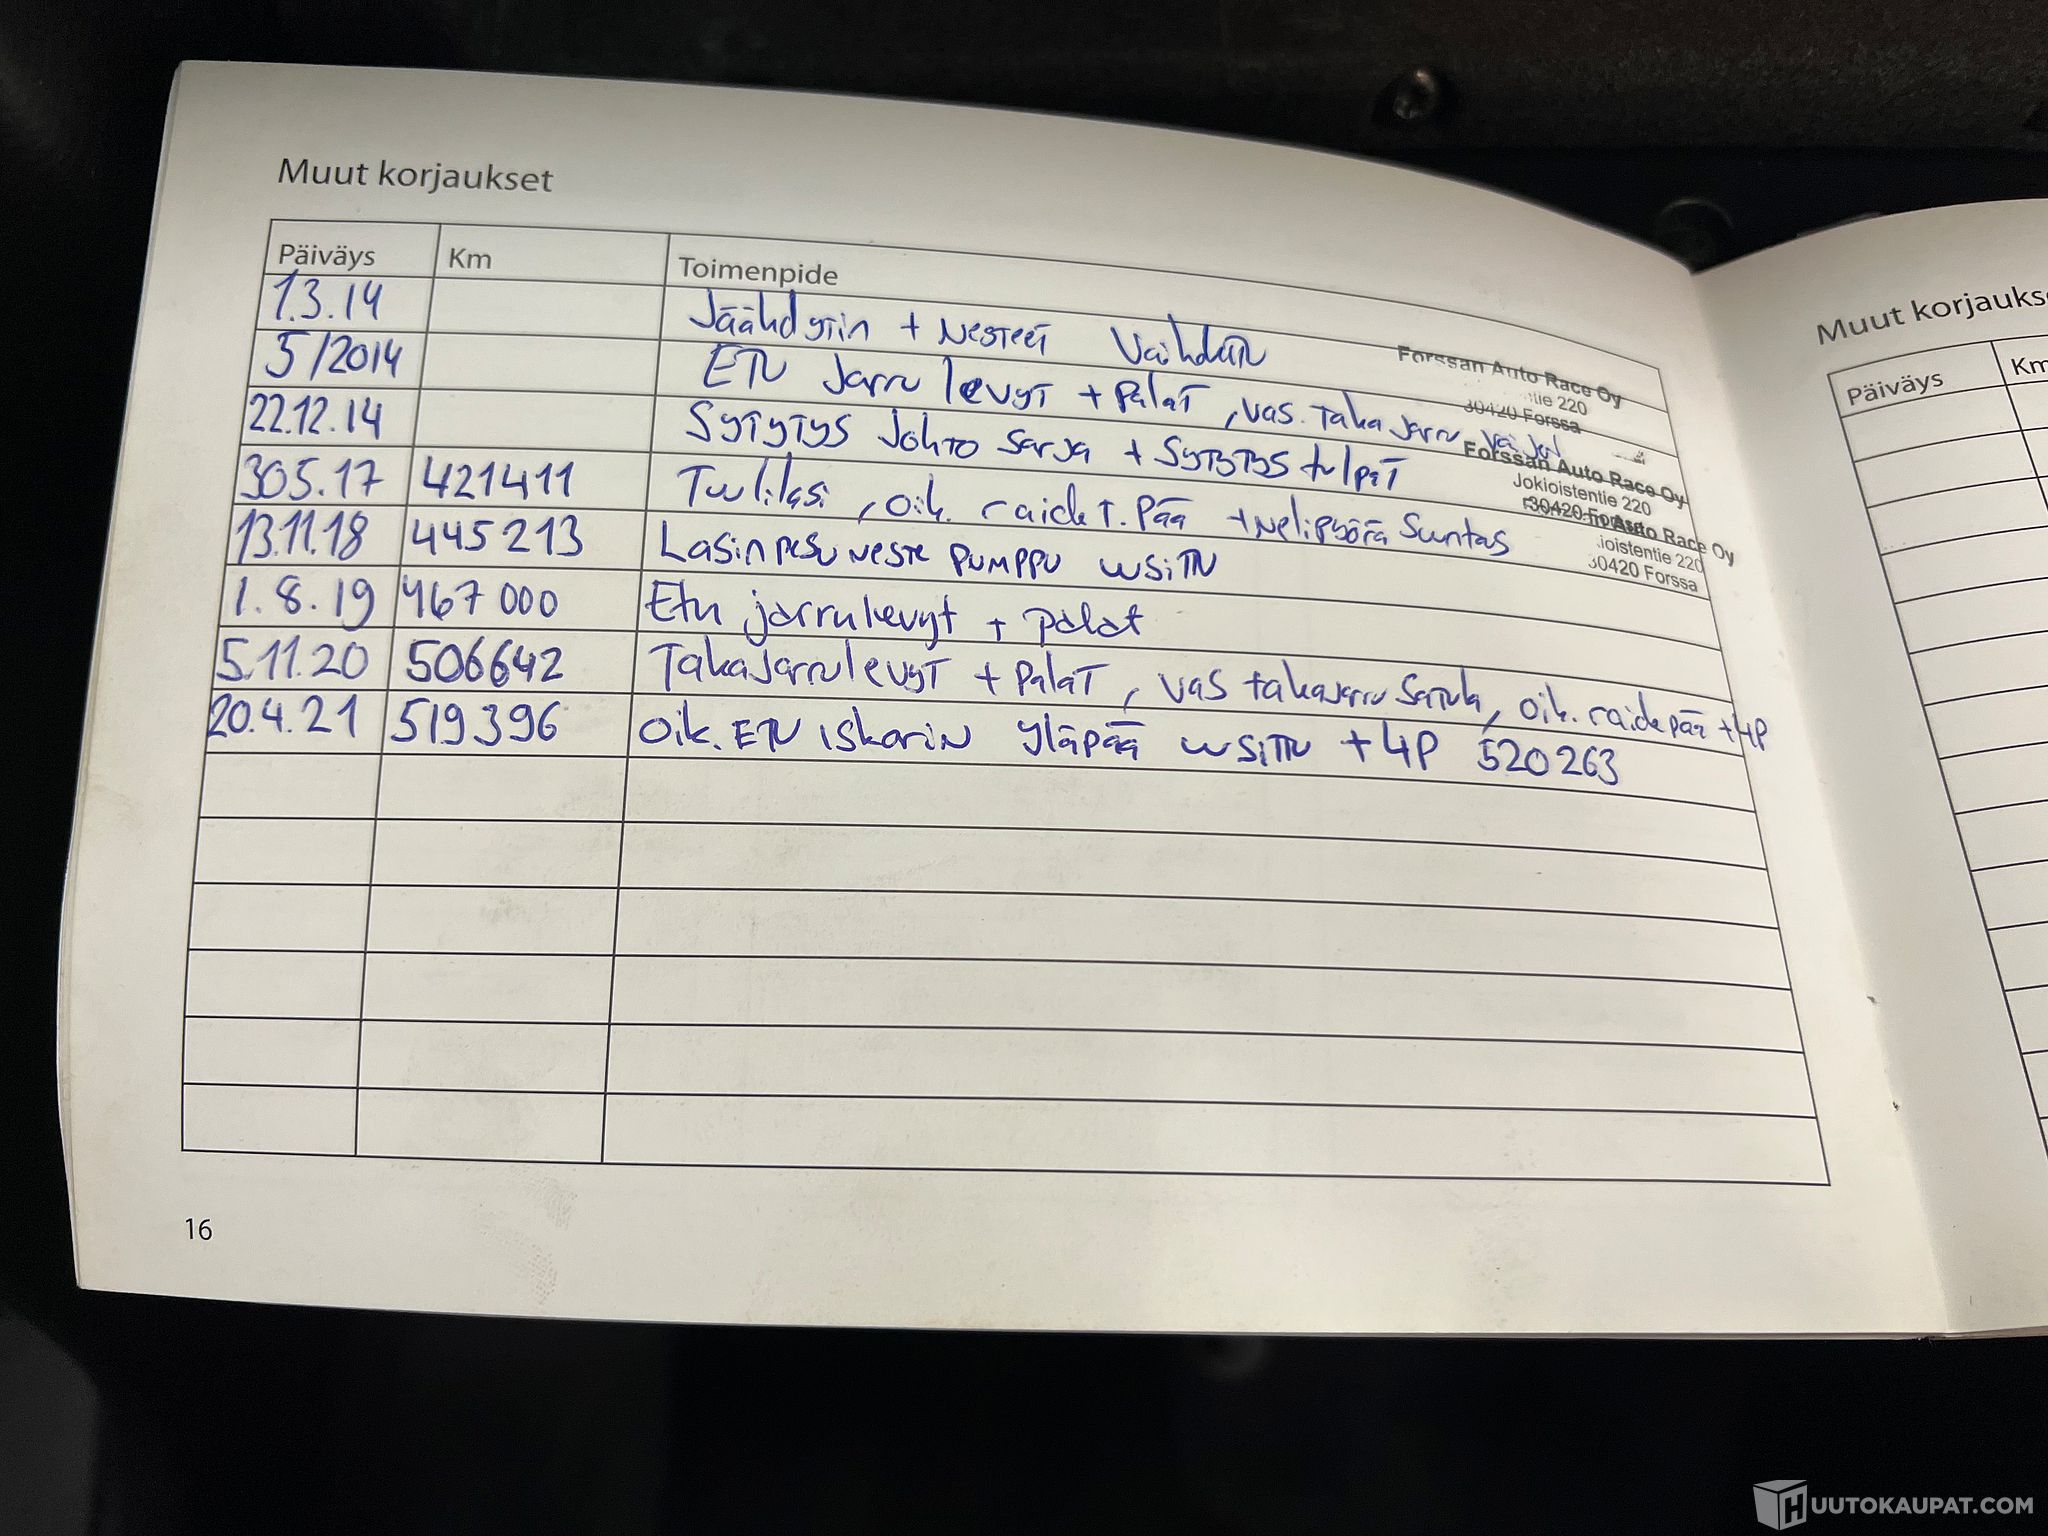 Muut korjaukset
Päiväys Km Toimenpide
1.3.14 Jäähdytin + nesteet Vaihdettu
5/2014 ETU Jarrulevyt + Palat, vas. Taka Jarru vaijeri
Forssan Auto Race Oy
tie 220
30420 Forssa
22.12.14 Sytytys Johto Sarja + Sytytys tulpat
Forssan Auto Race Oy
Jokioistentie 220
30420 Forssa
30.5.17 421411 Tuulilasi, oik. raidet. Pää + Nelipyörä Suuntas
Auto Race Oy
ioistentie 220
30420 Forssa
13.11.18 445213 Lasinpesuneste pumppu uusittu
1.8.19 467 000 Etu jarrulevyt + palat
5.11.20 506642 Takajarrulevyt + Palat, vas takajarru satula, oik. raidepää + 4P
20.4.21 519396 oik. ETU iskarin yläpää uusittu + 4P 520263
16
Muut korjaukse
Päiväys Km
HUUTOKAUPAT.COM